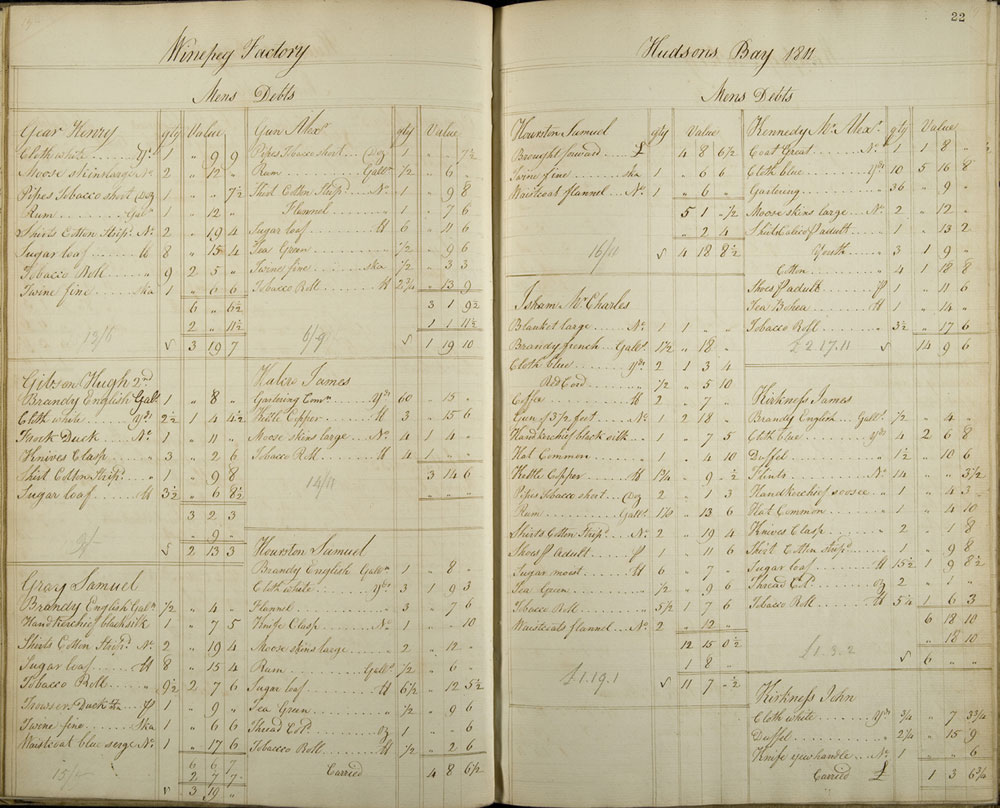 22
Winepeg Factory
Mens Debts
Gear Henry qty Value
Cloth white Yd. 1 " 9 9
Moose skins large No. 2 " 12 "
Pipes Tobacco short Doz 1 " " 7½
Rum Gall 1 " 12 "
Shirts Cotton Strip. No. 2 " 19 4
Sugar loaf lb 8 " 15 4
Tobacco Roll " 9 2 5 "
Twine fine Ska 1 " 6 6
6 " 6½
2 " 11½
13/6 3 19 7
Gibson Hugh 2nd
Brandy English Gall. 1 " 8 "
Cloth white Yds. 2½ 1 4 4½
Duck No. 1 " 11 "
Knives Clasp " 3 " 2 6
Shirt Cotton Strip. 1 " 9 8
Sugar loaf lb 3½ " 6 8½
3 2 3
" 9 "
9/- 2 13 3
Gray Samuel
Brandy English Gall. ½ " 4 "
Handkerchief black silk 1 " 7 5
Shirts Cotton Strip. No. 2 " 19 4
Sugar loaf lb 8 " 15 4
Tobacco Roll " 9½ 2 7 6
Trowsers Duck pr 1 " 9 "
Twine fine Ska 1 " 6 6
Waistcoat blue serge No. 1 " 17 6
6 6 7
2 7 7
15/- 3 19 "
Gun Alexr. qty Value
Pipes Tobacco short Doz 1 " " 7½
Rum Gall. ½ " 6 "
Shirt Cotton Strip. No. 1 " 9 8
Flannel 1 " 7 6
Sugar loaf lb 6 " 11 6
Tea Green ½ " 9 6
Twine fine ska ½ " 3 3
Tobacco Roll lb 2¾ " 13 9
3 1 9½
1 1 11½
6/9 1 19 10
Halcro James
Gartering Yds 60 " 15 "
Kettle Copper lb 3 " 15 6
Moose skins large No. 4 1 4 "
Tobacco Roll lb 4 1 " "
14/11 3 14 6
Hourston Samuel
Brandy English Gall. 1 " 8 "
Cloth white Yds. 3 1 9 3
Flannel 3 " 7 6
Knife Clasp No. 1 " " 10
Moose skins large 2 " 12 "
Rum Gall. ½ " 6 "
Sugar loaf lb 6½ " 12 5½
Tea Green " ½ " 9 6
Thread Cold. Oz 1 " " 6
Tobacco Roll lb ½ " 2 6
Carried 4 8 6½
Hudsons Bay 1811
Mens Debts
Hourston Samuel qty Value
Brought forward £ 4 8 6½
Twine fine ska 1 " 6 6
Waistcoat flannel No. 1 " 6 "
5 1 " ½
" 2 4
16/11 4 18 8½
Isham Mr. Charles
Blanket large No. 1 1 " "
Brandy french Gall. 1½ " 18 "
Cloth blue Yds. 2 1 3 4
Red Cord ½ " 5 10
Coffee lb 2 " 7 "
Gun of 3½ feet No. 1 2 18 "
Handkerchief black silk 1 " 7 5
Hat Common 1 " 4 10
Kettle Copper lb 1¾ " 9 " ½
Pipes Tobacco short Doz 2 " 1 3
Rum Gall. 1⅛ " 13 6
Shirts Cotton Strip. No. 2 " 19 4
Shoes pr adult pr 1 " 11 6
Sugar moist lb 6 " 7 "
Tea Green ½ " 9 6
Tobacco Roll 5½ 1 7 6
Waistcoats flannel No. 2 " 12 "
12 15 0½
1 8 "
£1.19.1 11 7 " ½
Kennedy Mr. Alexr. qty Value
Coat Great No. 1 1 8 "
Cloth blue Yds 10 5 16 8
Gartering 36 " 9 "
Moose skins large No. 2 " 12 "
Shirt Calico pr adult 1 " 13 2
Youth 3 1 9 "
Cotton 4 1 18 8
Shoes pr adult pr 1 " 11 6
Tea Bohea lb 1 " 14 "
Tobacco Roll 3½ " 17 6
£2.17.11 14 9 6
Kirkness James
Brandy English Gall. ½ " 4 "
Cloth blue Yds 4 2 6 8
Duffel 1½ " 10 6
Flints No. 14 " " 3½
Handkerchief soosee 1 " 4 3
Hat Common 1 " 4 10
Knives Clasp 2 " 1 8
Shirt Cotton Strip. 1 " 9 8
Sugar loaf lb 15½ 1 9 8½
Thread Cold. Oz 2 " 1 "
Tobacco Roll lb 5¼ 1 6 3
6 18 10
" 18 10
£1.3.2 6 " "
Kirkness John
Cloth white Yds ¾ " 7 3¾
Duffel 2¼ " 15 9
Knife yew handle No. 1 " " 6
Carried £ 1 3 6¾